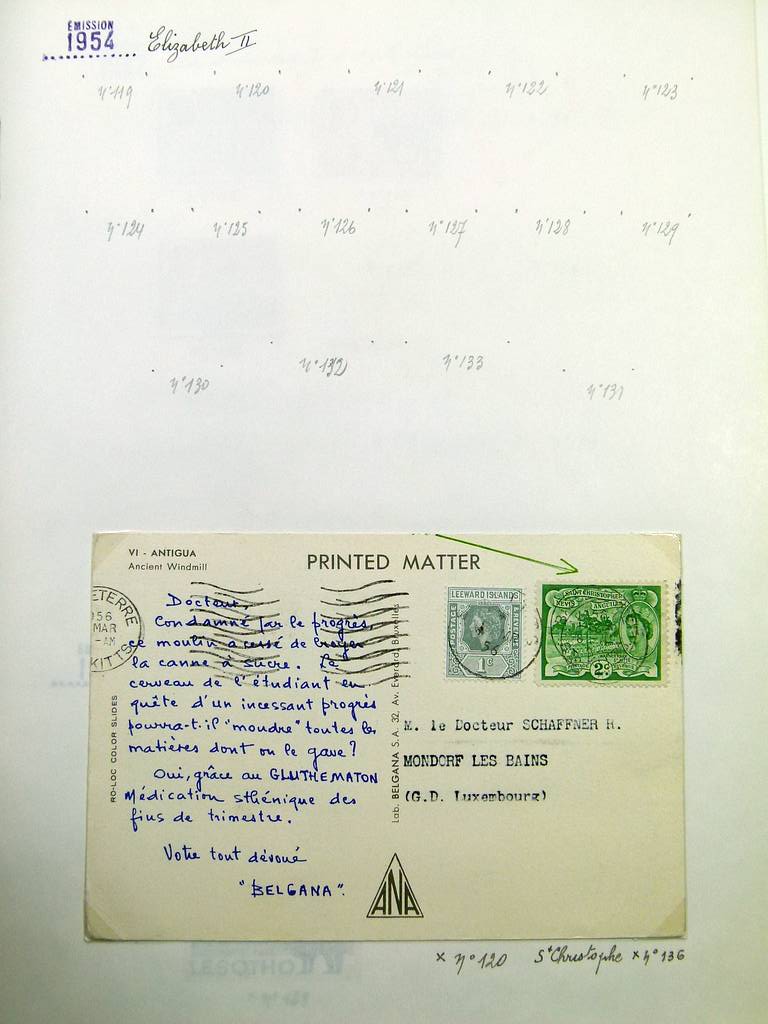 ÉMISSION
1954 Elizabeth II
n°119 n°120 n°121 n°122 n°123
n°124 n°125 n°126 n°127 n°128 n°129
n°130 n°132 n°133 n°131
VI - ANTIGUA
Ancient Windmill
PRINTED MATTER
ETERRE
56
MAR
AM
KITTS
Docteur,
Condamné par le progrès
ce moulin a cessé de broyer
la canne à sucre. Le
cerveau de l'étudiant en
quête d'un incessant progrès
pourra-t-il "moudre" toutes les
matières dont on le gave?
Oui, grâce au GLUTHEMATON
Médication sthénique des
fins de trimestre.
Votre tout dévoué
"BELGANA".
RO-LOC COLOR SLIDES
Lab. BELGANA S.A. 32, Av. Everard, Bruxelles
LEEWARD ISLANDS
POSTAGE
REVENUE
1c
ST CHRISTOPHER
NEVIS ANGUILLA
2c
M. le Docteur SCHAFFNER R.
MONDORF LES BAINS
(G.D. Luxembourg)
ANA
x n°120 St Christophe x n°136